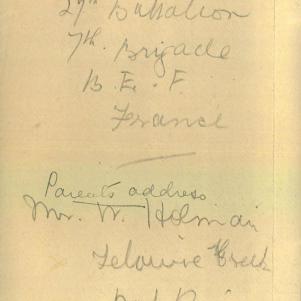 27th Battalion
7th. Brigade
B. E. F.
France
Parents address
Mr. W. Holman
Telowie Creek